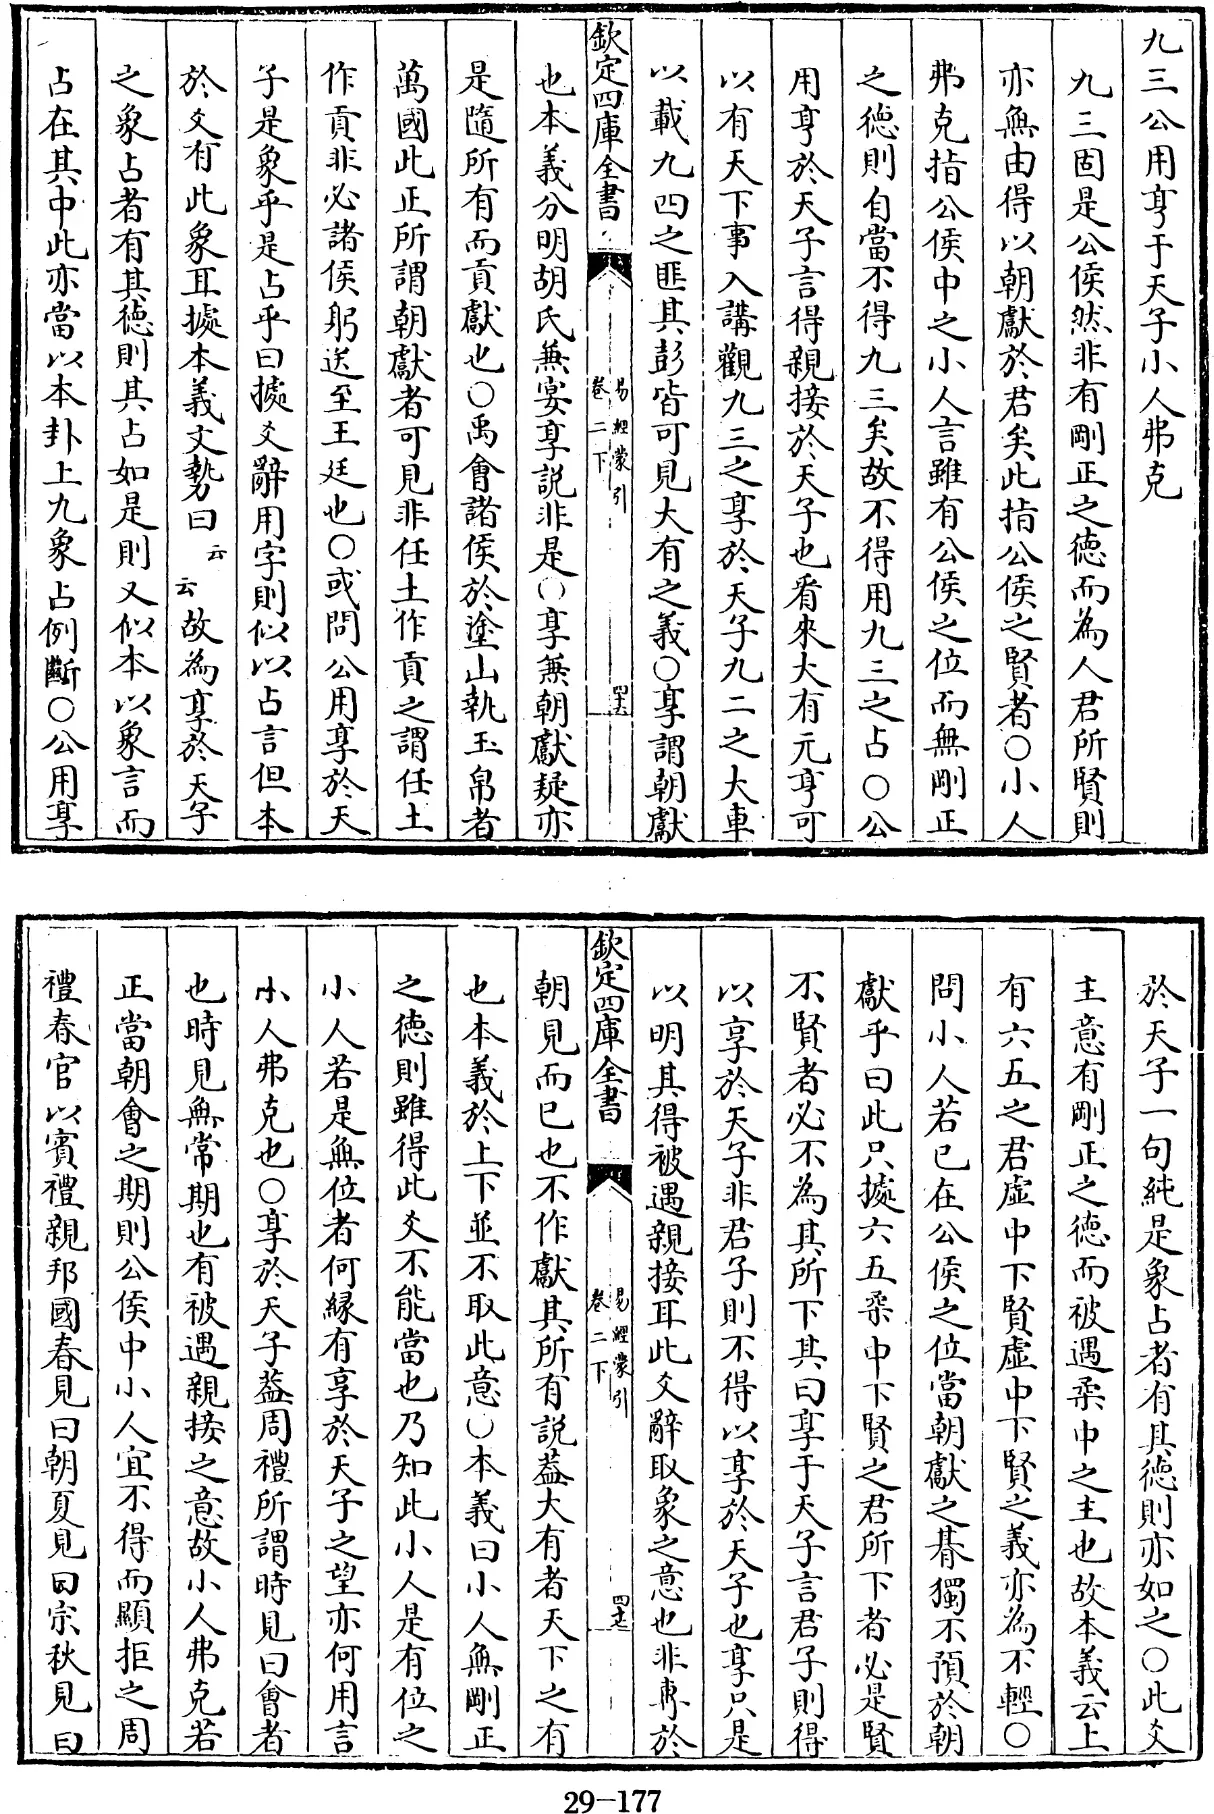 九三公用亨于天子小人弗克
九三固是公侯然非有剛正之德而為人君所賢則
亦無由得以朝獻於君矣此指公侯之賢者〇小人
弗克指公侯中之小人言雖有公侯之位而無剛正
之德則自當不得九三矣故不得用九三之占〇公
用亨於天子言得親接於天子也看來大有元亨可
以有天下事入講觀九三之享於天子九二之大車
以載九四之匪其彭皆可見大有之義〇享謂朝獻
欽定四庫全書
易經蒙引
卷二下
四十六
也本義分明胡氏兼宴享説非是〇享兼朝獻疑亦
是隨所有而貢獻也〇禹會諸侯於塗山執玉帛者
萬國此正所謂朝獻者可見非任土作貢之謂任土
作貢非必諸侯躬送至王廷也〇或問公用享於天
子是象乎是占乎曰據爻辭用字則似以占言但本
於爻有此象耳據本義文勢曰云云故為享於天子
之象占者有其德則其占如是則又似本以象言而
占在其中此亦當以本卦上九象占例斷〇公用享
於天子一句純是象占者有其德則亦如之〇此爻
主意有剛正之德而被遇柔中之主也故本義云上
有六五之君虛中下賢虛中下賢之義亦為不輕〇
問小人若已在公侯之位當朝獻之朞獨不預於朝
獻乎曰此只據六五柔中下賢之君所下者必是賢
不賢者必不為其所下其曰享于天子言君子則得
以享於天子非君子則不得以享於天子也享只是
以明其得被遇親接耳此爻辭取象之意也非專於
欽定四庫全書
易經蒙引
卷二下
四十七
朝見而已也不作獻其所有説葢大有者天下之有
也本義於上下並不取此意〇本義曰小人無剛正
之德則雖得此爻不能當也乃知此小人是有位之
小人若是無位者何縁有享於天子之望亦何用言
小人弗克也〇享於天子葢周禮所謂時見曰會者
也時見無常期也有被遇親接之意故小人弗克若
正當朝會之期則公侯中小人宜不得而顯拒之周
禮春官以賓禮親邦國春見曰朝夏見曰宗秋見曰
29-177